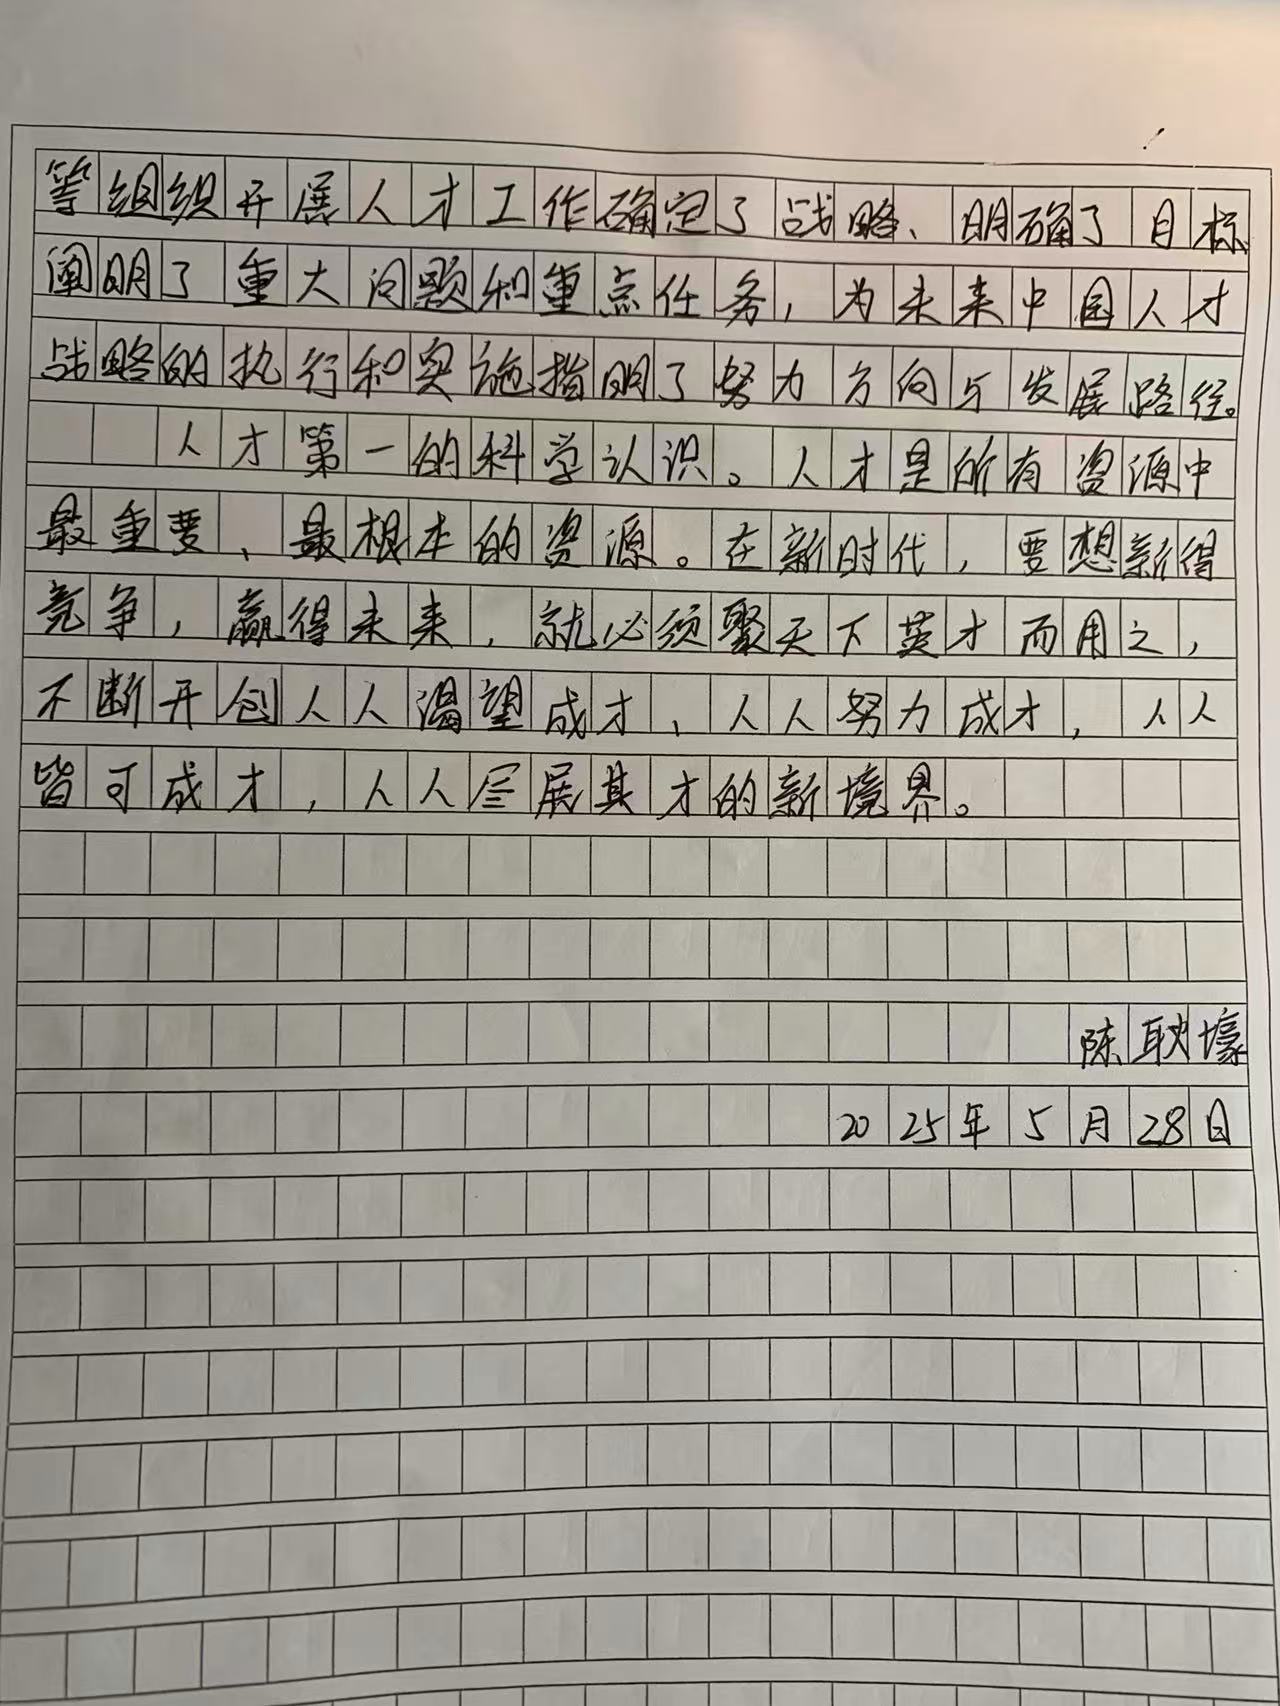 等组织开展人才工作确定了战略、明确了目标、
阐明了重大问题和重点任务，为未来中国人才
战略的执行和实施指明了努力方向与发展路径。
人才第一的科学认识。人才是所有资源中
最重要、最根本的资源。在新时代，要想新得
竞争，赢得未来，就必须聚天下英才而用之，
不断开创人人渴望成才、人人努力成才，人人
皆可成才，人人尽展其才的新境界。
陈耿壕
2025年5月28日